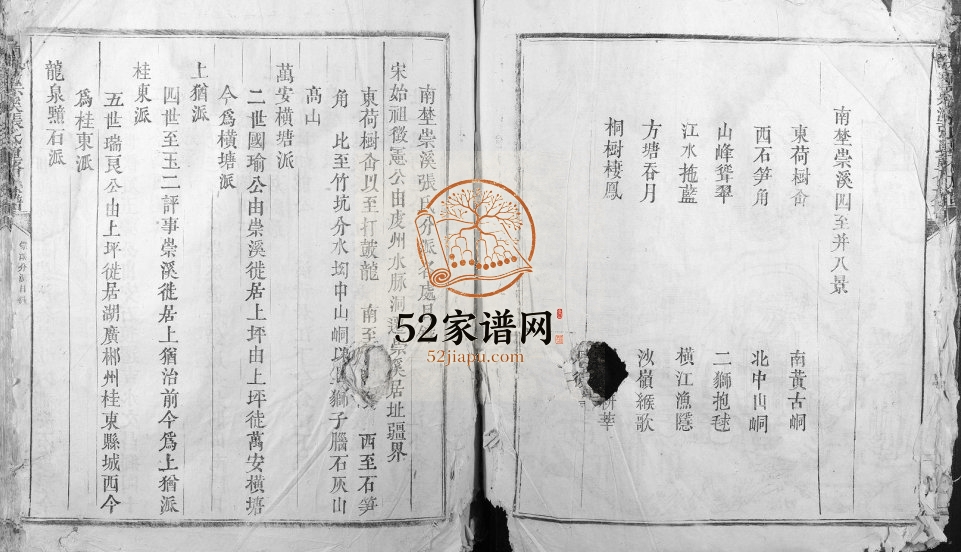 南埜崇溪四至并八景
東荷樹畬 南黃古峒
西石笋角 北中山峒
山峰聳翠 二獅抱毬
江水拖藍 橫江漁隱
方塘吞月 沙嶺緱歌
桐樹棲鳳
南埜崇溪張氏分派各處
宋始祖徵憲公由虔州水脉洞遷崇溪居址疆界
東荷樹畬以至打鼓龍 南至 西至石笋
角 比至竹坑分水坳中山峒以 獅子腦石灰山
高山
萬安橫塘派
二世國瑜公由崇溪徙居上坪由上坪徙萬安橫塘
今爲橫塘派
上猶派
四世至玉二評事崇溪徙居上猶治前今爲上猶派
桂東派
五世瑞良公由上坪徙居湖廣郴州桂東縣城西今
爲桂東派
龍泉顯石派
52家谱网
52jiapu.com